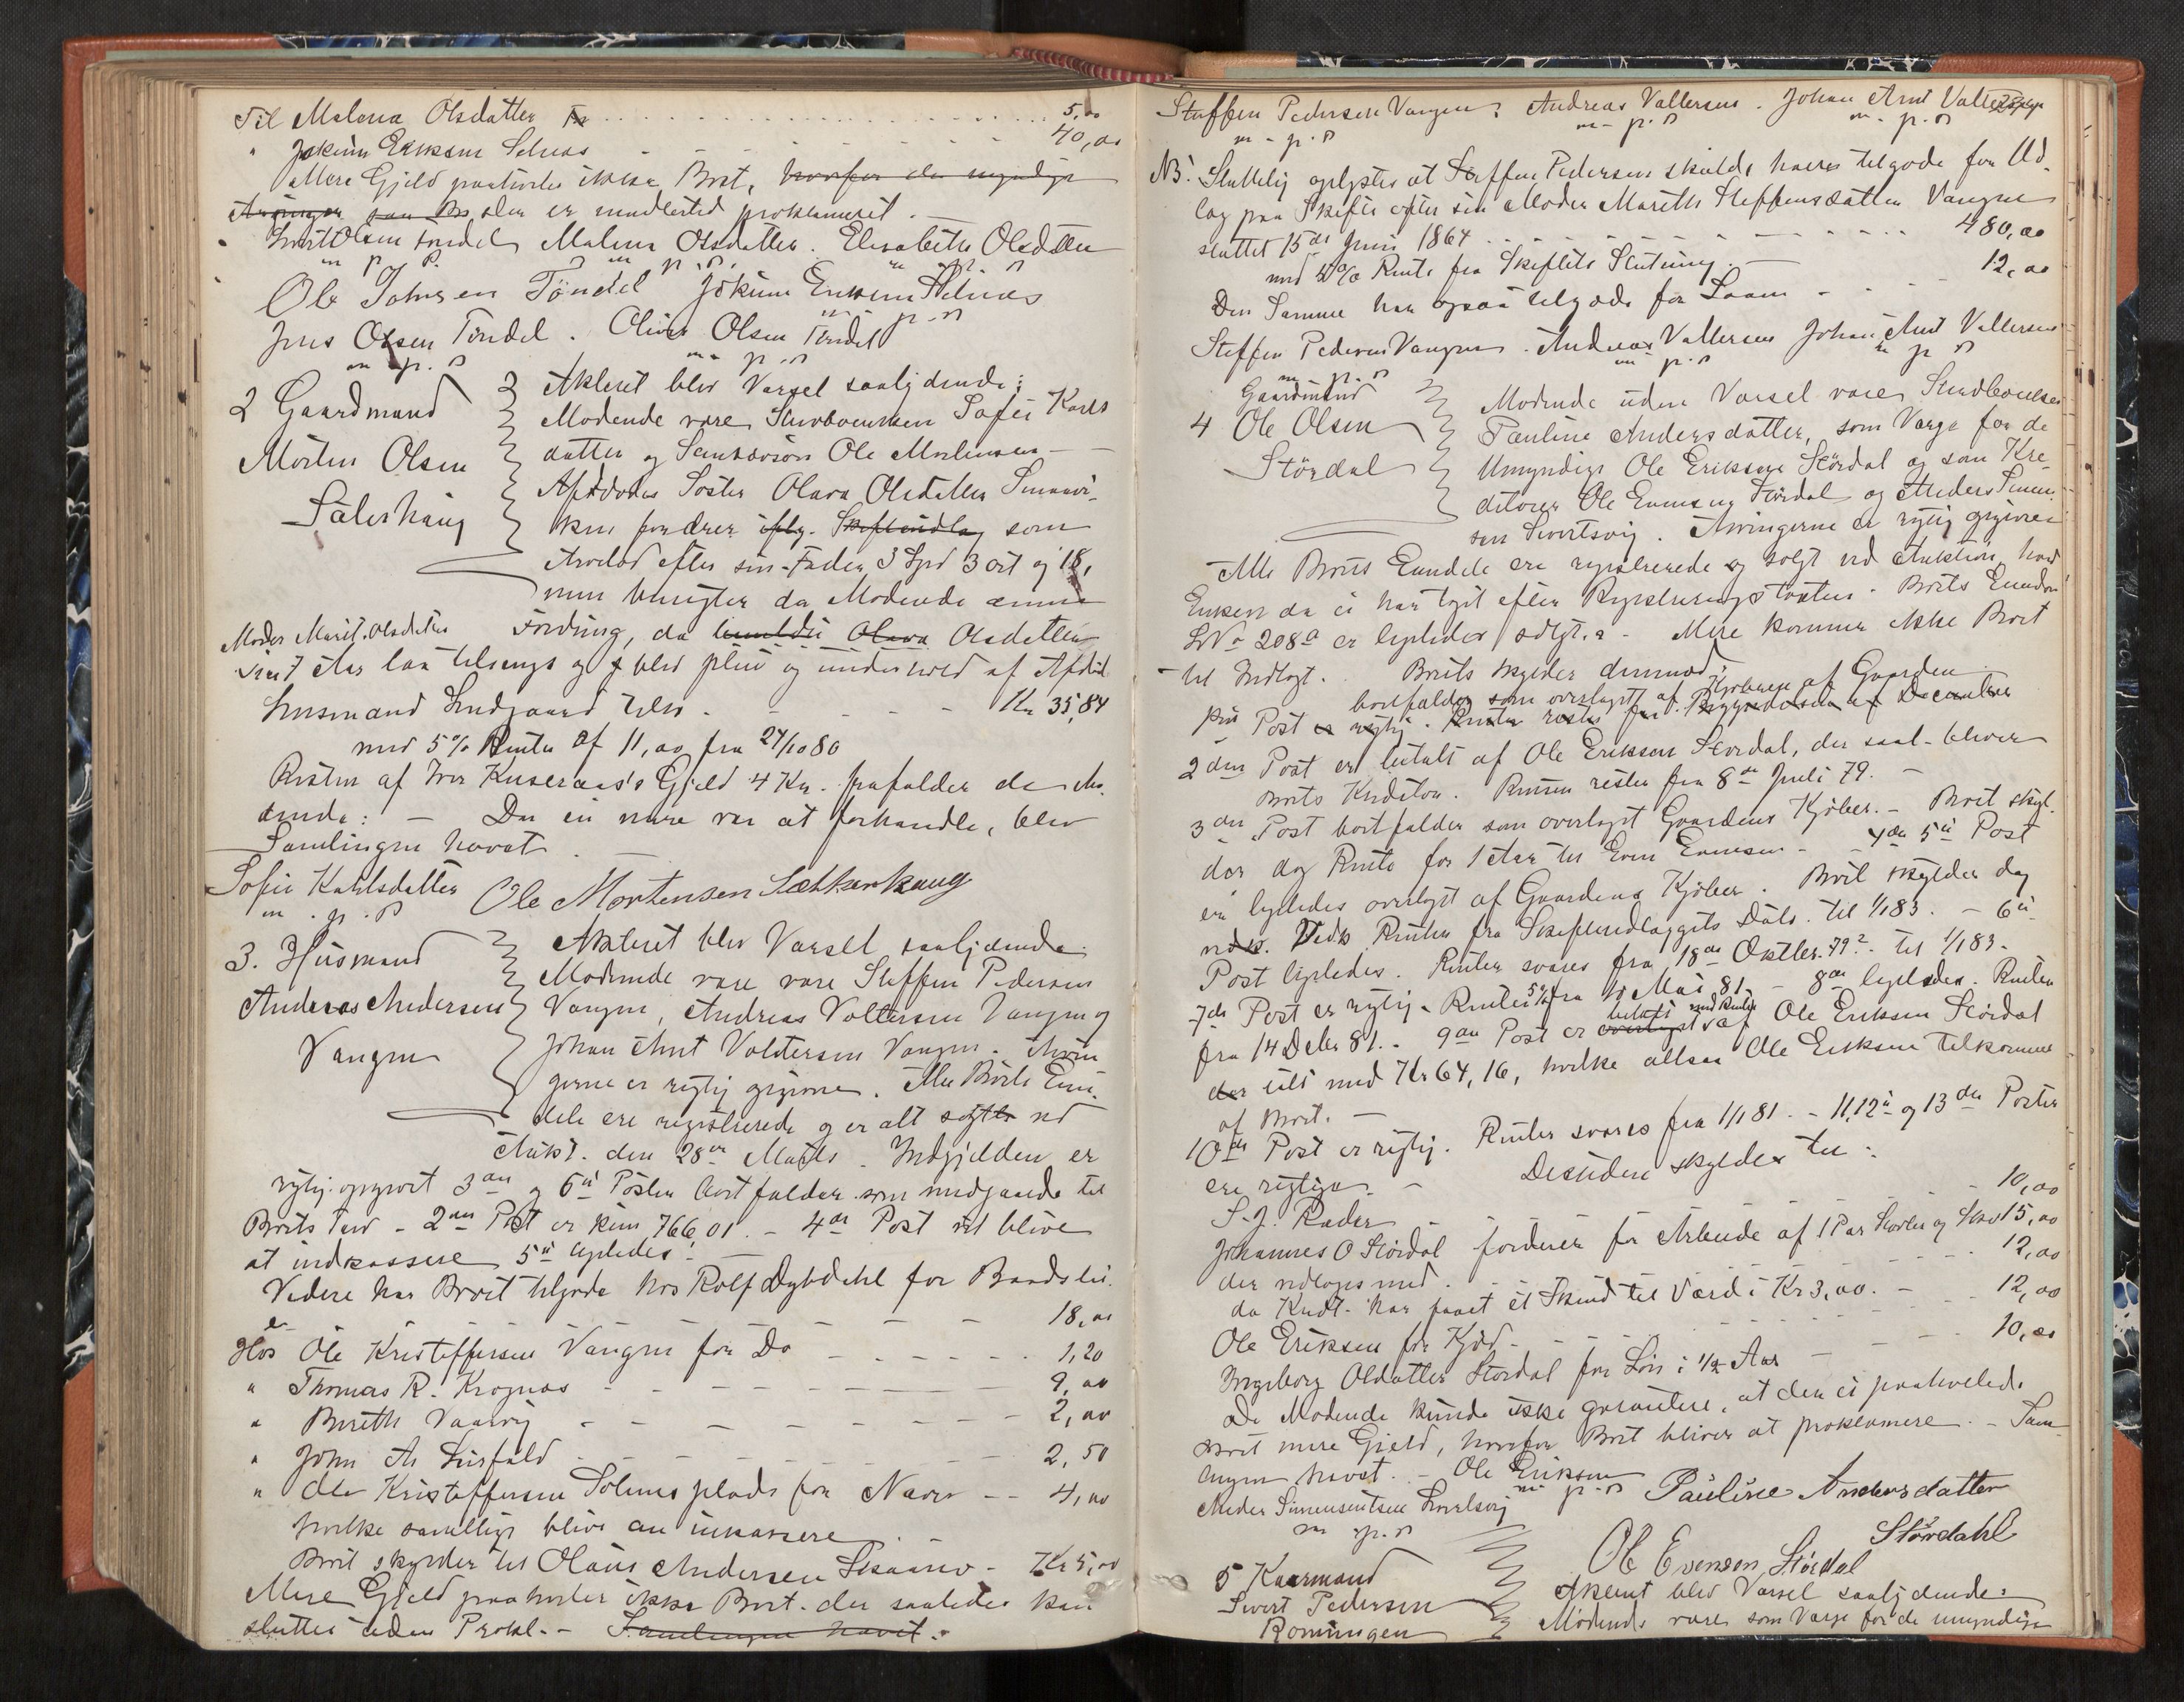 Til Malena Olsdatter Kr . . . . 5,00
" Jokum Eriksen Selnæs - - - 40,00
Mere Gjeld paahviler ikke Boet, hvorfor de myndige
Arvinger saa Bo der er imidlertid proklameret. —
Sivert Olsen Tøndel Malena Olsdatter. Elisabeth Olsdatter
m p. P. m p. P. m p. P.
Ole Johnsen Tøndel Jokum Eriksen Selnæs
m p. P.
Jens Olsen Tøndel. Oliver Olsen Tøndel
m p. P. m p. P.
2 Gaardmand
Morten Olsen
Sæterhaug
Akteret blev Varsel saalydende:
Mødende vare Stervboenken Sofie Karls
datter og Samboesøn Ole Mortensen —
Afdødes Søster Olava Olsdatter
ken fordrer iflg. Skifteudlæg som
Arvelod efter sin Fader 3 Spd 3 ort og 18,
men benegter de Mødende denne
Moder Marit Olsdatter Fordring, da Olava Olsdatter
i 7 Aar laa tilsengs og blev pleiet og underholdt af Afdøde
Husmand Lindgaard - - - Kr 35,84
med 5% Renter af 11,00 fra 24/10 80
Resten af Iver Kuseraas's Gjeld 4 Kr. frafalder de Mø
dende: — Da ei mere var at forhandle, blev
Samlingen hævet.
Sofie Karlsdatter Ole Mortensen Sætherhaug
m. p. P.
3. Husmand
Andreas Andersen
Vangen
Akteret blev Varsel saalydende.
Mødende vare vare Steffen Pedersen
Vangen, Andreas Voltersen Vangen og
Johan Arnt Voldtersen Vangen. Arvin
gerne er rigtig opgivne. Alle Boets Eien
dele ere registrerede og er alt solgte ved
Aukt. den 28de Marts. Indgjelden er
rigtig opgivet 3die og 6te Poster bortfalder som medgaaede til
Boets Tarv - 2den Post er kun 766,01. - 4de Post vil blive
at indkassere 5te ligeledes. —
Videre har Boet tilgode hos Rolf Dybdahl for Baadsleie
- - - 18,00
Hos Ole Kristoffersen Vangen for Do - - - - 1,20
" Thomas R. Krognæs - - - - 9,00
" Bereth Vaarvig - - - - 2,00
" John A. Lusfald - - - - 2,50
" Ole Kristoffersen Solemsplads for Næver - - 4,00
hvilke samtlige blive at inkassere. —
Boet skylder til Olaus Andersen - Kr 5,00
Mere Gjeld paahviler ikke Boet der saaledes kan
sluttes uden Prokl. - Samlingen hævet.
Steffen Pedersen Vangen: Andreas Vallersen. Johan Arnt
m. p. P. m. p. P. m. p. P.
NB. Sluttelig oplystes at Steffen Pedersen skulde have tilgode for Ud
læg paa Skifte efter sin Moder Mareth Steffensdatter Vangen
sluttet 15de Juni 1864 - - - - 480,00
med 4% Rente fra Skiftets Slutning. —
Den Samme har ogsaa tilgode for Laan - - - 12,00
Steffen Pedersen Vangen. Andreas Vallersen Johan Arnt Vallersen
m. p. P. m. p. P. m p P
Gaardmand
4 Ole Olsen
Størdal
Mødende uden Varsel vare Stervboenken
Pauline Andersdatter, som Værge for de
Umyndige Ole Eriksen Størdal og som Kre
ditorer Ole Evensen Størdal og Anders Simen
sen Sivertsvig. Arvingerne er rigtig opgivne
Alle Boets Eiendele ere registrerede og solgt ved Auktion, hvad
Enken da ei har taget efter Registreringstaxten. Boets Eiendom
LNo 208a er ligeledes solgt. - Mere kommer ikke Boet
- til Indtægt. Boets skylder derimod:
bortfalder som overtaget af Kjøberen af Gaarden
1ste Post er rigtig. Renter restes fra Begyndelsen af December
2den Post er betalt af Ole Eriksen Størdal, der saal. bliver
Boets Kreditor. Renten rester fra 8de Juli 79. —
3die Post bortfalder som overtaget Gaardens Kjøber. - Boet skyl
der dog Rente for 1 Aar til Even Evensen - - 4de 5te Post
er ligeledes overtaget af Gaardens Kjøber. Boet skylder dog
Renter fra Skifteudlæggets Dato til 1/1 83. - 6te
Post ligeledes. Renter svares fra 18de Oktbr. 79? til 1/1 83.
7de Post er rigtig. Renter 5% fra Mai 81. - 8de ligeledes. Renter
fra 14 Debr 81. - 9de Post er overtaget betalt med Renter af Ole Eriksen Størdal
der med Kr 64,16, hvilke altsaa Ole Eriksen tilkommer
af Boet. —
10de Post er rigtig. Renter svares fra 1/1 81. - 11, 12te og 13de Poster
ere rigtige. — Desuden skyldes til:
S. J. Røder - - - 10,00
Johannes O Størdal fordrer for Arbeide af 1 Par Støvler og Sko 15,00
der vedtoges med. - - - 12,00
da Kredt. har faaet et Skind til Værd i Kr 3,00. -
Ole Eriksen for Kjød - - - 12,00
Ingeborg Olsdatter Størdal for Løn i 1/2 Aar - - - 10,00
De Mødende kunde ikke garantere, at der ei paahvilede
Boet mere Gjeld, hvorfor Boet bliver at proklamere. - Sam
lingen hævet. - Ole Eriksen Pauline Andersdatter
m. p. P.
Anders Simensen Sivertsvig Størdahl
m p. P.
Ole Evensen Størdal
5 Kaarmand
Sivert Pedersen
Romungen
Akteret blev Varsel saalydende:
Mødende vare som Værge for de umyndige